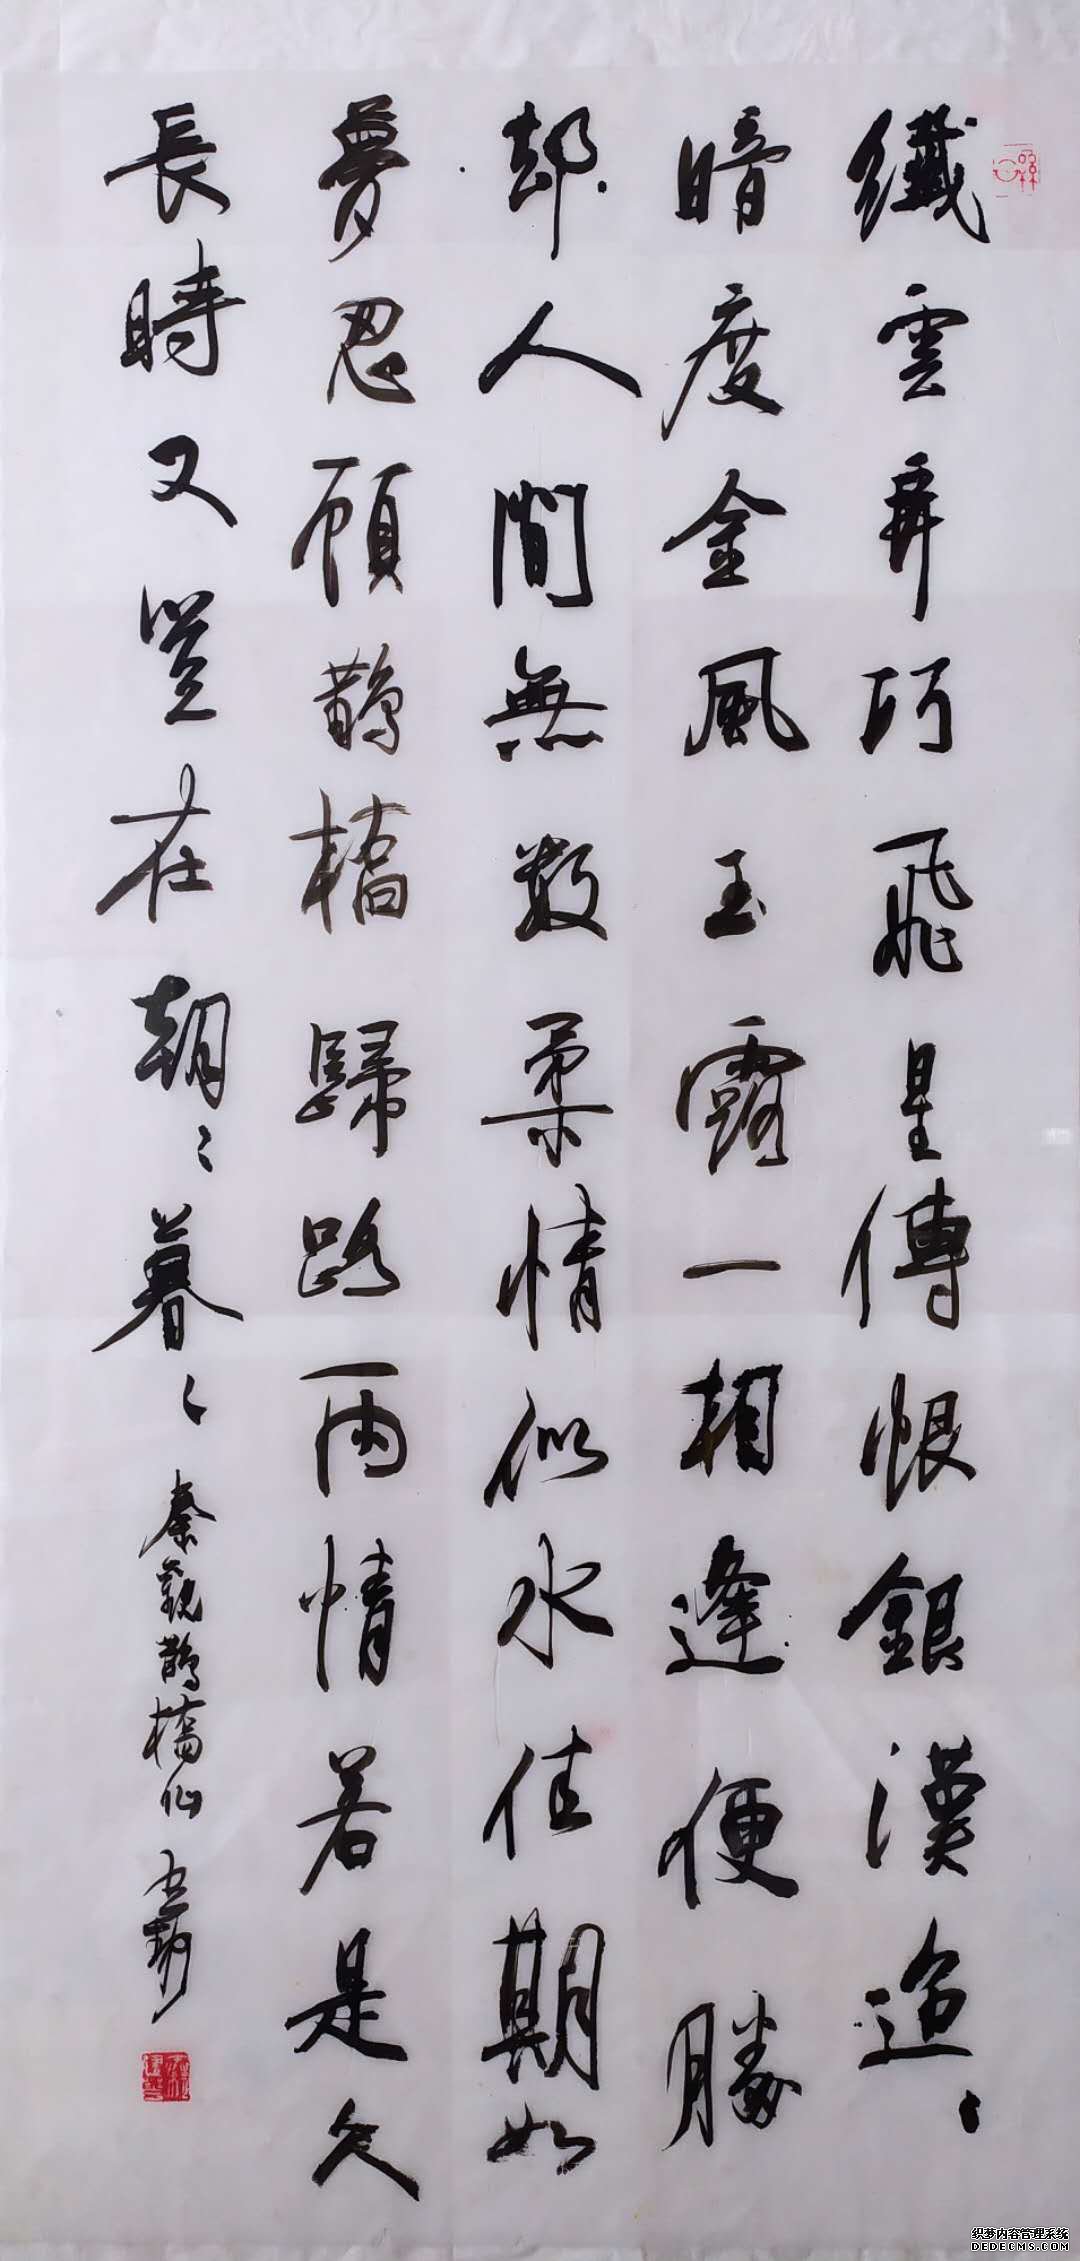 纖雲弄巧飛星傳恨銀漢迢〻
暗度金風玉露一相逢便勝
却人間無數柔情似水佳期如
夢忍顧鵲橋歸路兩情若是久
長時又豈在朝〻暮〻秦觀鵲橋仙
织梦内容管理系统
DEDECMS.COM